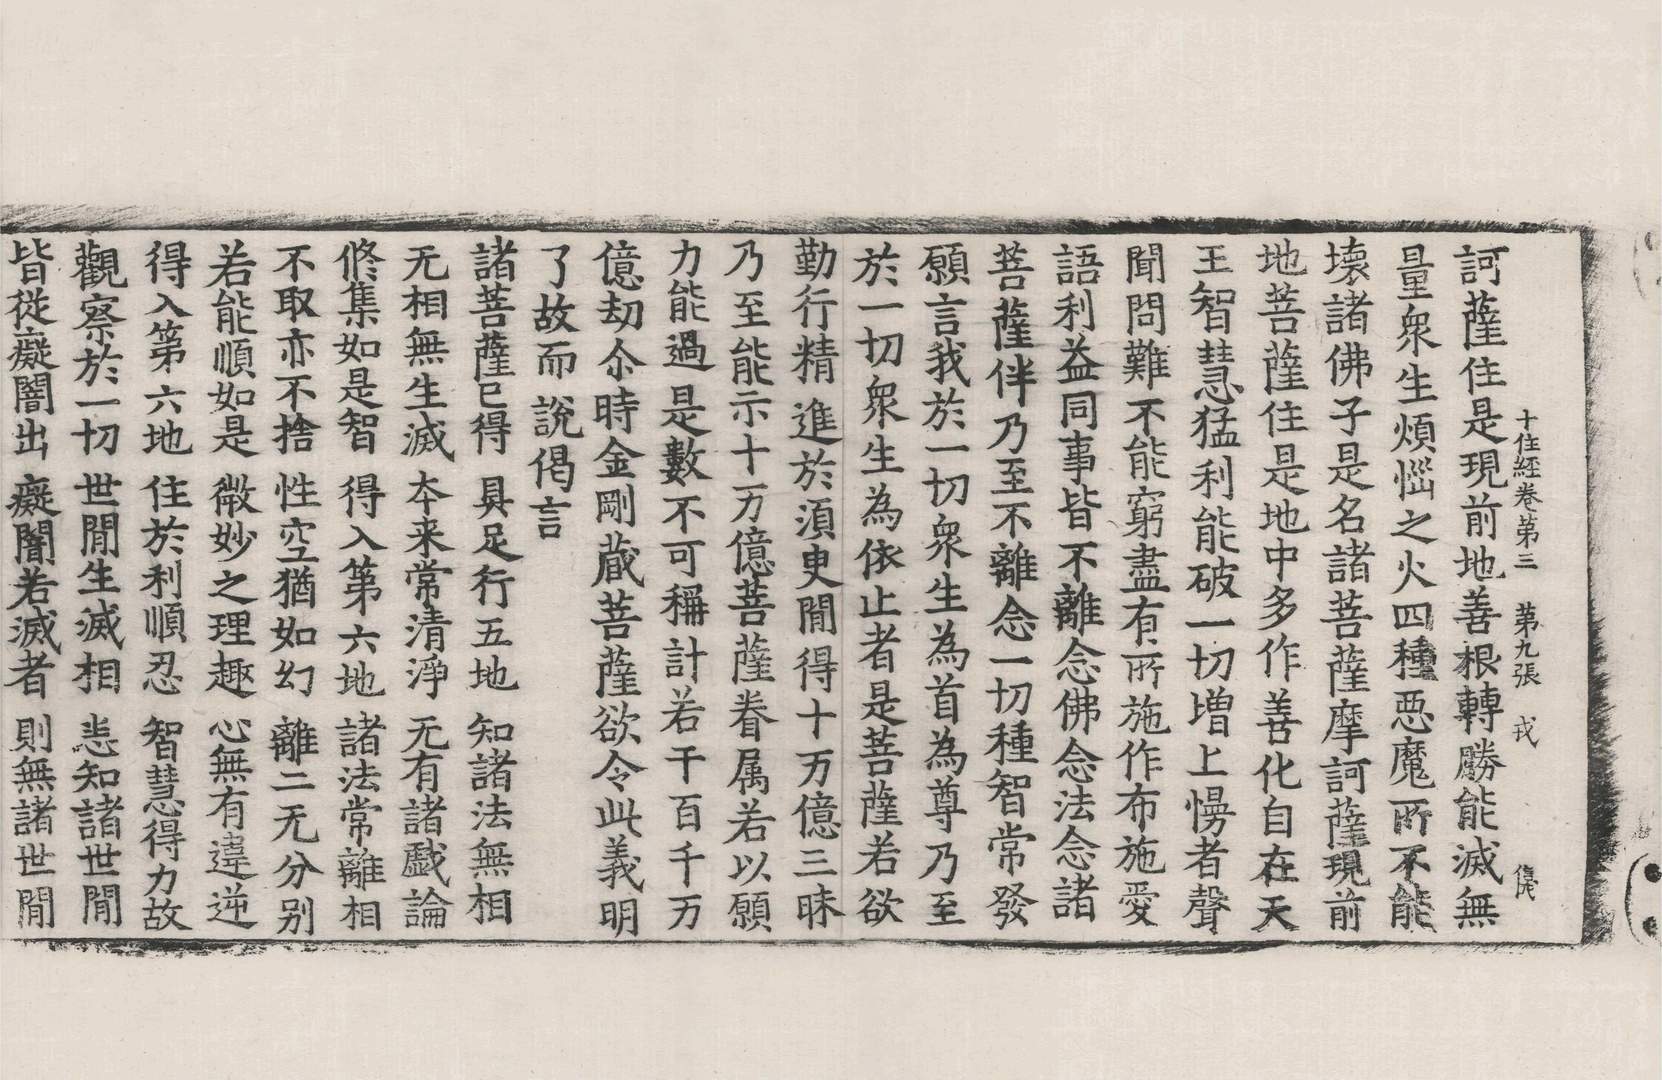 十住經卷第三　第九張　戎
訶薩住是現前地善根轉勝能滅無
量衆生煩惱之火四種惡魔所不能
壞諸佛子是名諸菩薩摩訶薩現前
地菩薩住是地中多作善化自在天
王智慧猛利能破一切增上慢者聲
聞問難不能窮盡有所施作布施愛
語利益同事皆不離念佛念法念諸
菩薩伴乃至不離念一切種智常發
願言我於一切衆生為首為尊乃至
於一切衆生為依止者是菩薩若欲
勤行精進於須臾閒得十万億三昧
乃至能示十万億菩薩眷属若以願
力能過是數不可稱計若干百千万
億劫尒時金剛藏菩薩欲令此義明
了故而說偈言
諸菩薩已得　具足行五地　知諸法無相
无相無生滅　本来常清淨　无有諸戱論
修集如是智　得入第六地　諸法常離相
不取亦不捨　性空猶如幻　離二无分别
若能順如是　微妙之理趣　心無有違逆
得入第六地　住於利順忍　智慧得力故
觀察於一切　世閒生滅相　悉知諸世閒
皆從癡闇出　癡闇若滅者　則無諸世閒